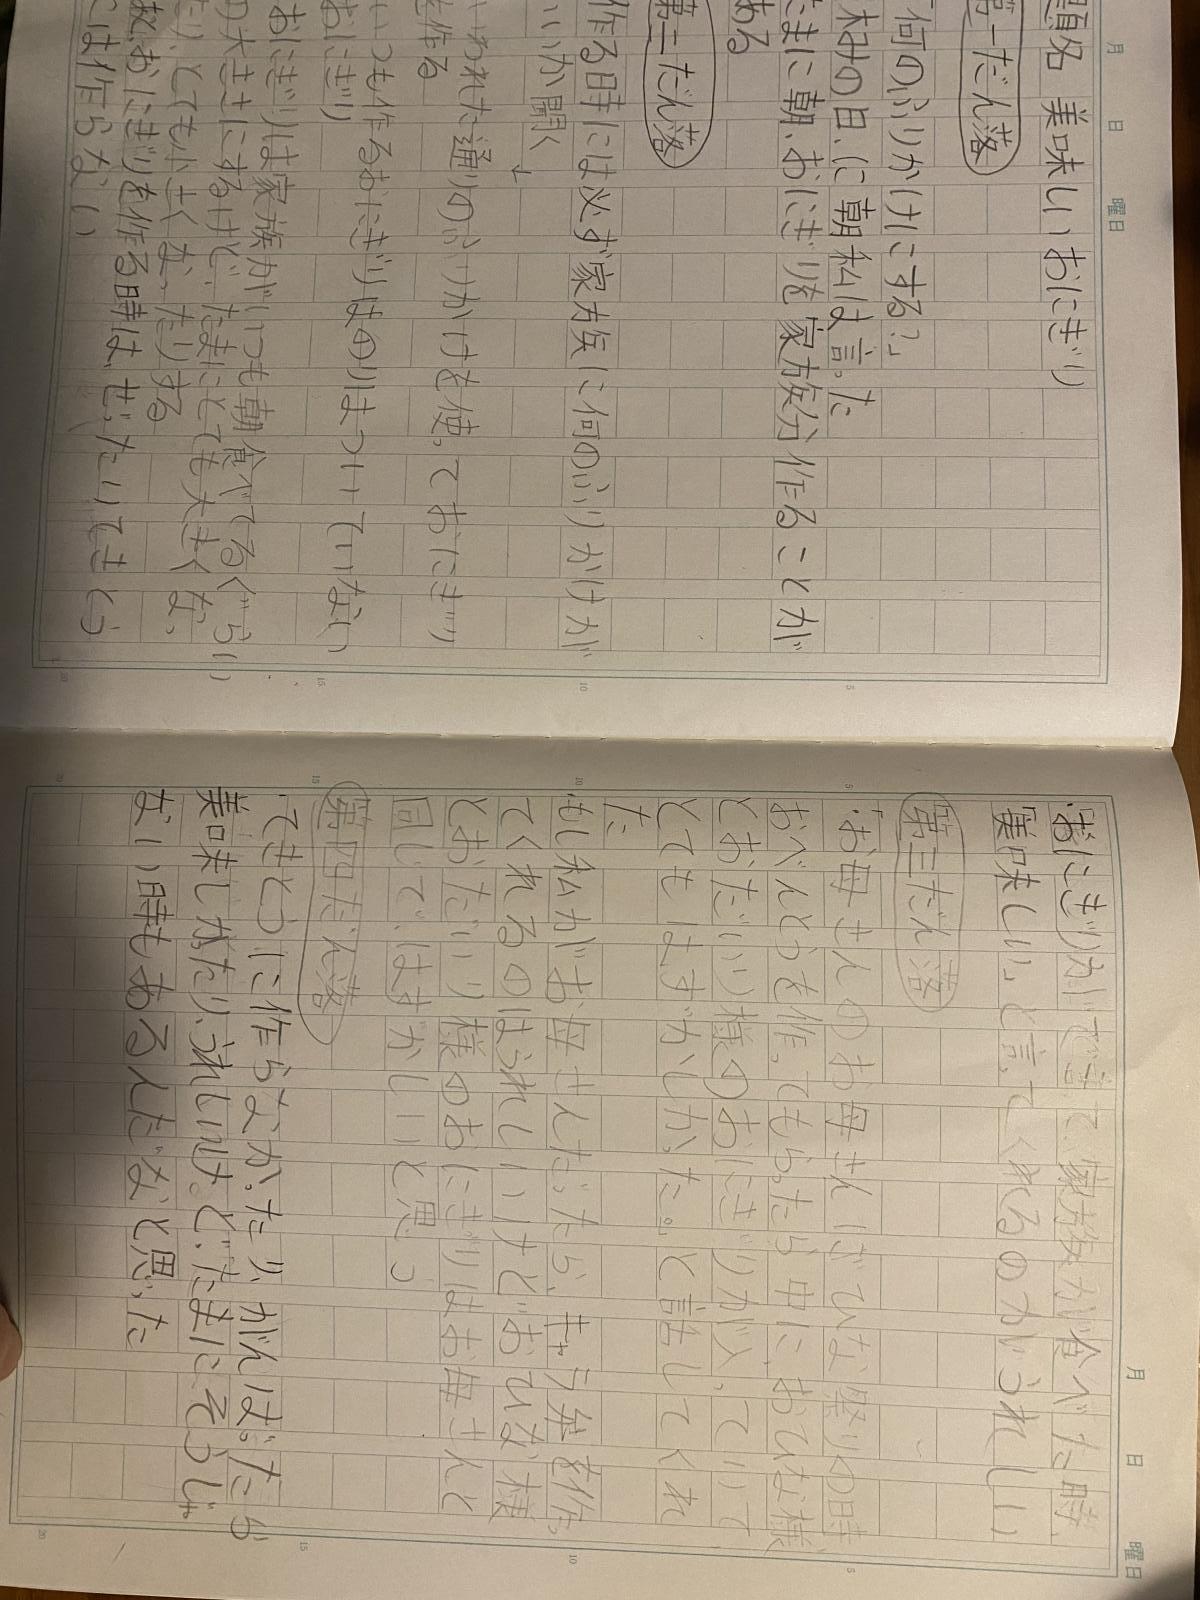 月　日　曜日
題名　美味しいおにぎり
第一だん落
何のふりかけにする?」
休みの日、に朝私は言った
たまに朝、おにぎりを家族分作ることが
ある
第二だん落
作る時には必ず家族に何のふりかけが
いいか聞く
いわれた通りのふりかけを使っておにぎり
を作る
いつも作るおにぎりはのりはついていない
おにぎり
おにぎりは家族がいつも朝食べてるぐらい
の大きさにするけど、たまにとても大きくなっ
たり、とても小さくなったりする
おにぎりを作る時は、ぜったいてきとう
には作らない
5
10
15
20
月　日　曜日
おにぎりができて、家族が食べた時、
「美味しい」と言ってくれるのがうれしい
第三だん落
「お母さんのお母さんはひな祭りの時
おべんとうを作ってもらったら中に、おひな様
とおだいり様のおにぎりが入っていて
とてもはずかしかった。」と話してくれ
た
もし私がお母さんだったら、キャラ弁を作っ
てくれるのはうれしいけど、おひな様
とおだいり様のおにぎりはお母さんと
同じで、はずかしいと思う
第四だん落
・てきとうに作らなかったり、がんばったら
美味しかたり、うれしいけど、たまにそうじゃ
ない時もあるんだなと思った
5
10
15
20